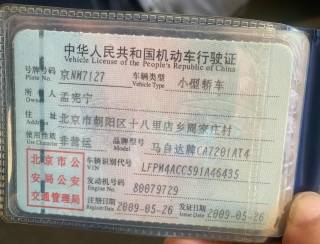 中华人民共和国机动车行驶证
Vehicle License of the People's Republic of China
号牌号码 京NW7127 车辆类型 小型轿车
Plate No. Vehicle Type
所有人 孟宪宁
Owner
住址 北京市朝阳区十八里店乡周家庄村
Address
使用性质 非营运 品牌型号 马自达牌CA7201AT4
Use Character Model
北京市公安局公安交通管理局
车辆识别代号 LFPM4ACC591A46435
VIN
发动机号码 80079729
Engine No.
注册日期 2009-05-26 发证日期 2009-05-26
Register Date Issue Date